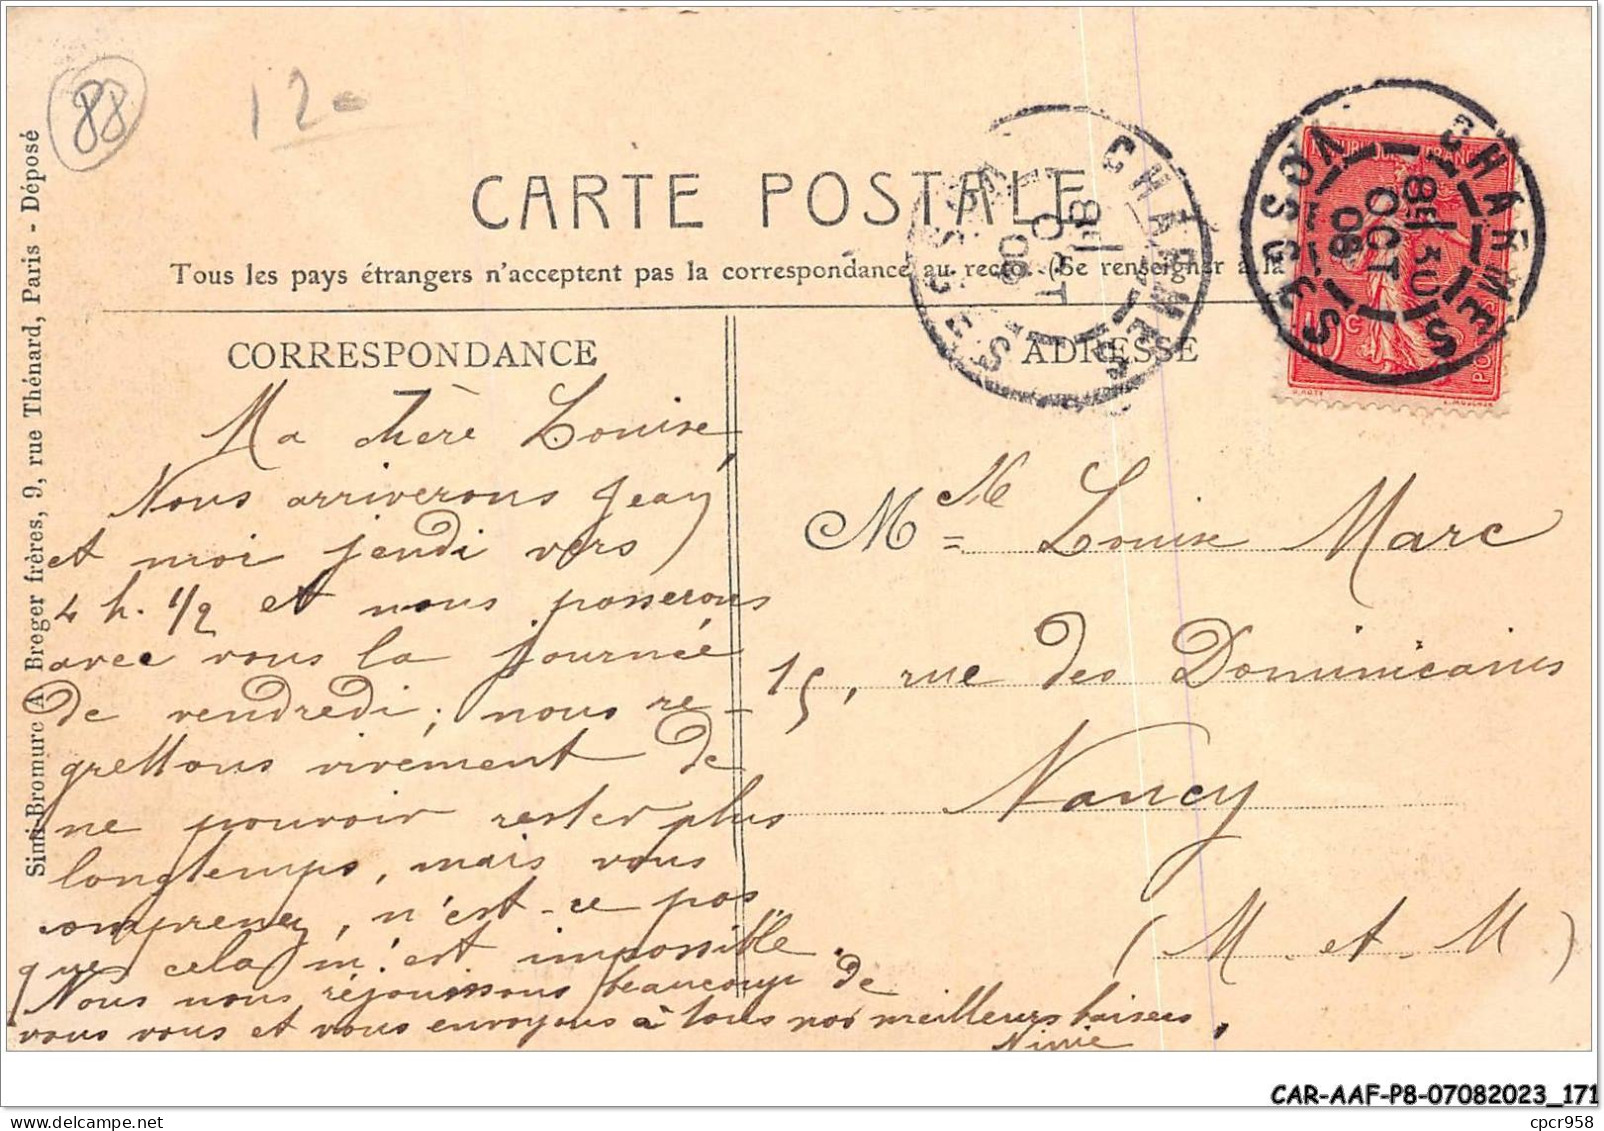 88
12-
CARTE POSTALE
Tous les pays étrangers n'acceptent pas la correspondance au recto. (Se renseigner à la
CORRESPONDANCE
ADRESSE
Simi-Bromure A. Breger frères, 9, rue Thénard, Paris - Déposé
CHARMES
8H 30
OCT
08
VOSGES
CHARMES
8H
OCT
08
VOSGES
Ma chère Louise,
Nous arriverons Jean
et moi jeudi vers
4 h. 1/2 et nous passerons
avec vous la journée
de vendredi ; nous re-
grettons vivement de
ne pouvoir rester plus
longtemps, mais vous
comprenez, n'est-ce pas
que cela m'est impossible.
Nous nous réjouissons beaucoup de
vous voir et vous envoyons à tous nos meilleurs baisers,
Ninie
Mlle Louise Marc
15, rue des Dominicains
Nancy
(M. et M)
CAR-AAF-P8-07082023_171
delcampe.net
cpcr958